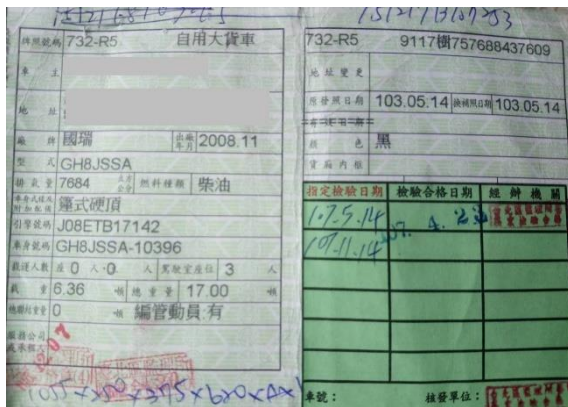 牌照號碼 732-R5 自用大貨車
車主
地址
廠牌 國瑞 出廠年月 2008.11
型式 GH8JSSA
排氣量 7684 立方公分 燃料種類 柴油
篷式硬頂
引擎號碼 J08ETB17142
車身號碼 GH8JSSA-10396
載運人數 座 0 人 0 人 駕駛室座位 3 人
載重 6.36 噸 總重量 17.00 噸
0 噸 編管動員:有
732-R5 9117樹757688437609
地址變更
原發照日期 103.05.14 換補照日期 103.05.14
顏色 黑
貨廂內框
指定檢驗日期 檢驗合格日期 經辦機關
107.5.14
107.11.14
車號: 核發單位: